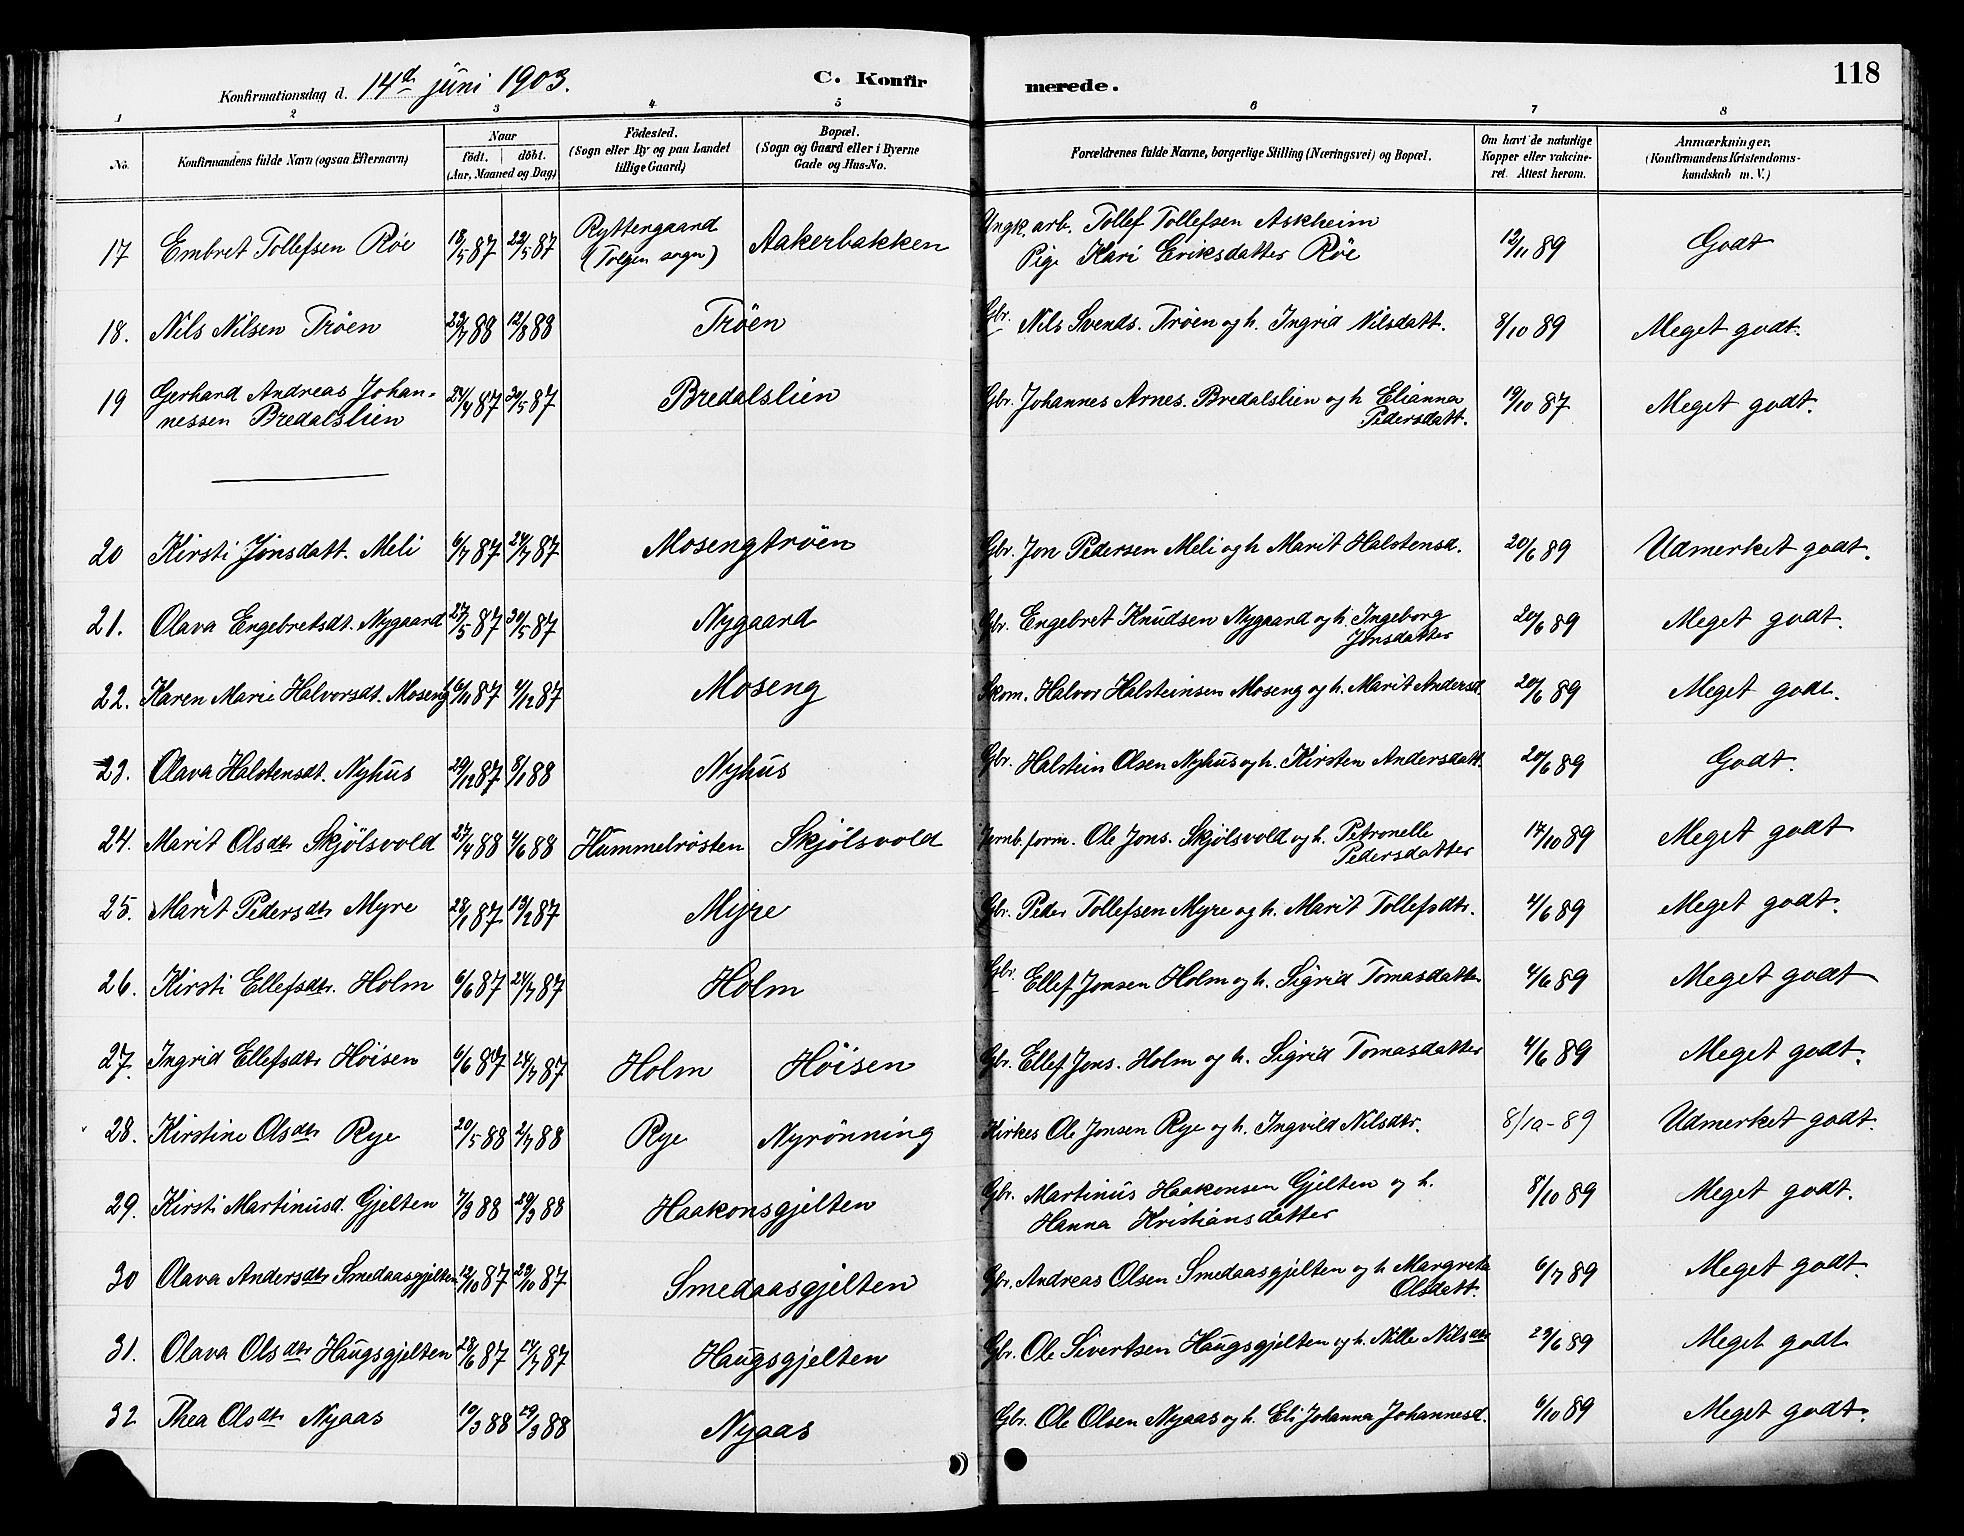 Konfirmationsdag d. 14d juni 1903. C. Konfirmerede. 118
1 2 3 4 5 6 7 8
No. Konfirmandens fulde Navn (ogsaa Efternavn) Naar født. døbt. (Aar, Maaned og Dag) Födested. (Sogn eller By og paa Landet tillige Gaard) Bopæl. (Sogn og Gaard eller i Byerne Gade og Hus-No. Forældrenes fulde Navne, borgerlige Stilling (Næringsvei) og Bopæl. Om havt de naturlige Kopper eller vakcineret. Attest herom. Anmærkninger. (Konfirmandens Kristendomskundskab m. V.)
17 Embret Tollefsen Røe 18/5 87 22/5 87 Ryttergaard (Tolgen sogn) Aakerbakken Ungk. arb. Tollef Tollefsen Askheim Pige Kari Eriksdatter Röe 12/11 89 Godt
18. Nils Nilsen Tröen 23/7 88 12/8 88 Tröen Gbr. Nils Svends. Tröen og h. Ingrid Nilsdatt. 8/10 89 Meget godt.
19 Gerhard Andreas Johannessen Bredalslien 24/4 87 30/5 87 Bredalslien Gbr. Johannes Arnes. Bredalslien og h Elianna Pedersdatt. 19/10 87 Meget godt.
20 Kirsti Jonsdatt. Meli 6/7 87 24/7 87 Mosengtröen Gbr. Jon Pedersen Meli og h Marit Halstensd. 20/6 89 Udmerket godt.
21. Olava Engebretsdt. Nygaard 27/5 87 30/5 87 Nygaard Gbr. Engebret Knudsen Nygaard og h. Ingeborg Jonsdatter 20/6 89 Meget godt.
22. Karen Marie Halvorsdt. Moseng 6/11 87 4/12 87 Moseng Skom. Halvor Halsteinsen Moseng og h. Marit Andersd. 20/6 89 Meget godt.
23. Olava Halstensdt. Nyhus 29/12 87 8/1 88 Nyhus Gbr. Halstein Olsen Nyhus og h. Kirsten Andersdatt. 20/6 89 Godt.
24. Marit Olsdtr Skjölsvold 27/4 88 4/6 88 Hummelrösten Skjölsvold Jernb. form. Ole Jons. Skjölsvold og h. Petronelle Pedersdatter 17/10 89 Meget godt
25. Marit Pedersdtr Myre 28/1 87 13/2 87 Myre Gbr. Peder Tollefsen Myre og h. Marit Tollefsdtr. 4/6 89 Meget godt.
26. Kirsti Ellefsdtr. Holm 6/6 87 24/7 87 Holm Gbr. Ellef Jonsen Holm og h. Sigrid Tomasdatter 4/6 89 Meget godt
27. Ingrid Ellefsdtr Höisen 6/6 87 24/7 87 Holm Höisen Gbr. Ellef Jons. Holm og h. Sigrid Tomasdatter 4/6 89 Meget godt.
28. Kirstine Olsdtr Rye 20/5 88 2/7 88 Rye Nyrönning Kirkes Ole Jonsen Rye og h. Ingvild Nilsdtr. 8/10-89 Udmerket godt.
29. Kirsti Martinusd. Gjelten 7/3 88 29/3 88 Haakonsgjelten Gbr. Martinus Haakonsen Gjelten og h. Hanna Kristiansdatter 8/10 89 Meget godt.
30 Olava Andersdtr Smedaasgjelten 12/10 87 23/10 87 Smedaasgjelten Gbr. Andreas Olsen Smedaasgjelten og h Margrete Olsdatt. 6/7 89 Meget godt.
31. Olava Olsdtr Haugsgjelten 28/6 87 24/7 87 Haugsgjelten Gbr. Ole Sivertsen Haugsgjelten og h. Nille Nilsdtr 23/6 89 Meget godt
32 Thea Olsdtr Nyaas 10/3 88 29/3 88 Nyaas Gbr. Ole Olsen Nyaas og h. Eli Johanna Johannesd. 6/10 89 Meget godt.